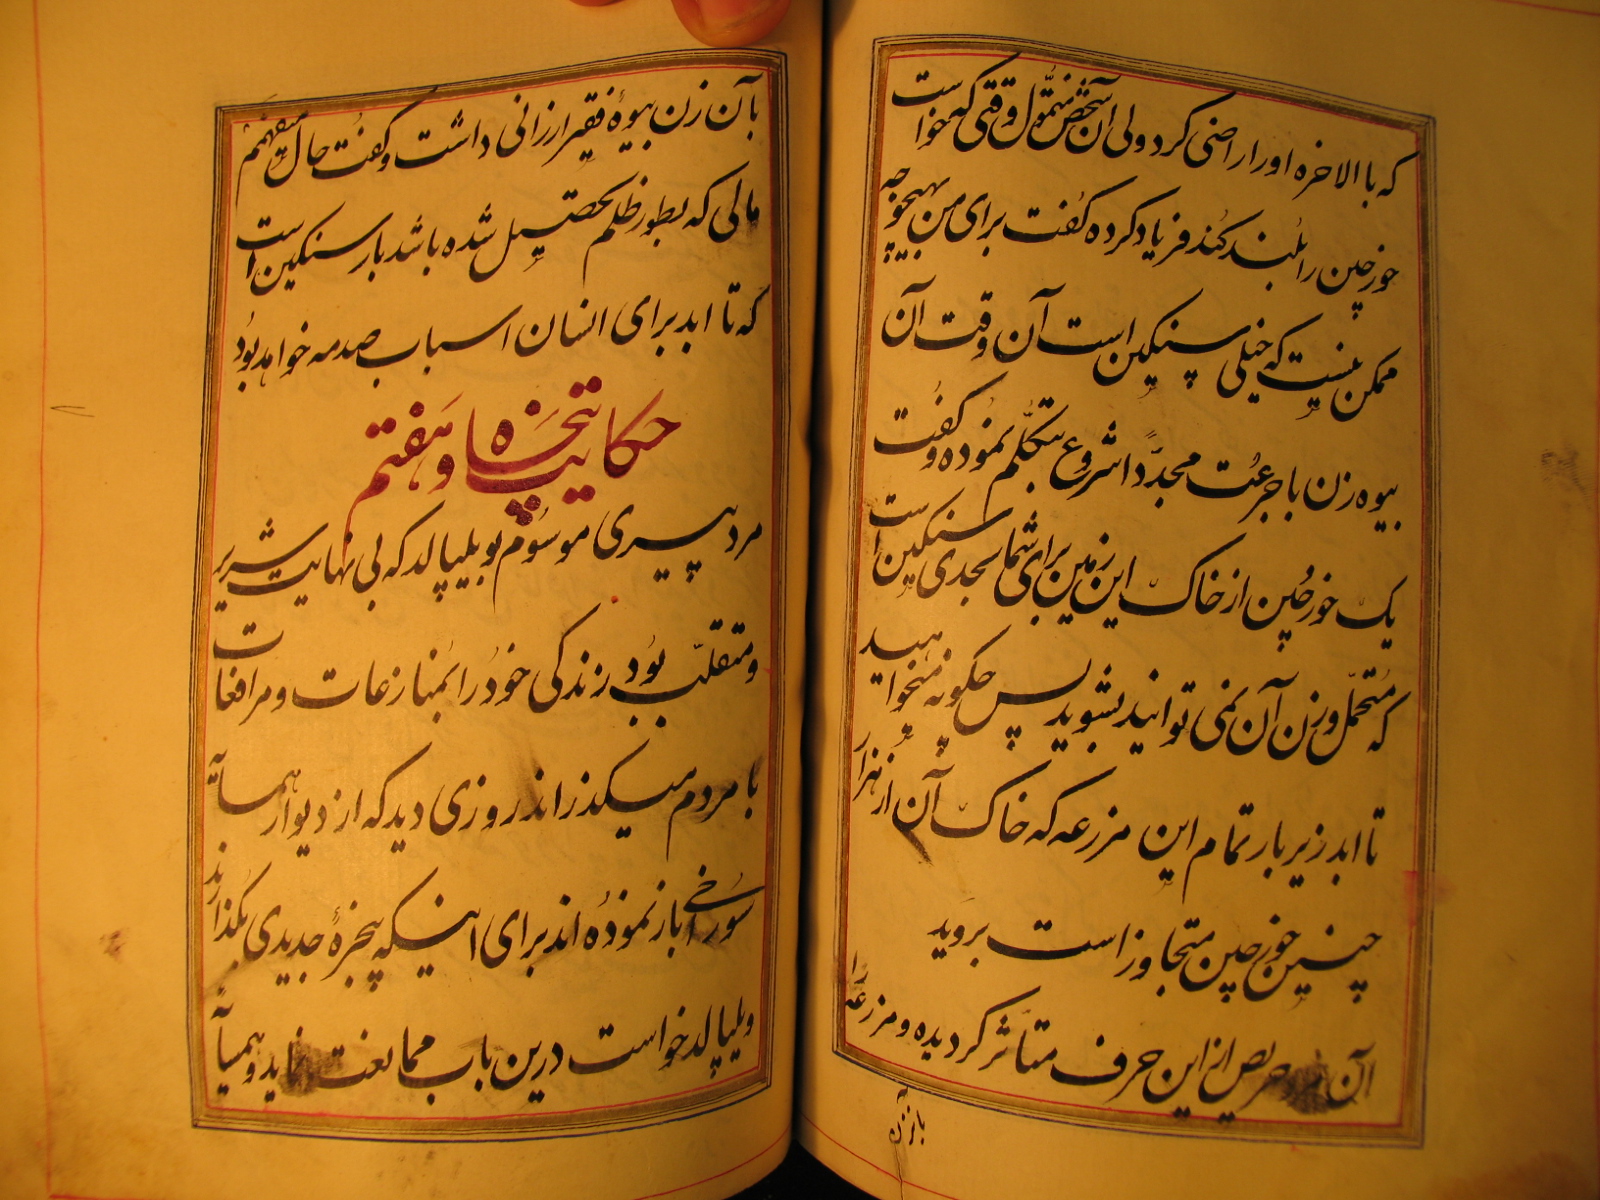 که باالاخره او را راضی کرد ولی آن شخص متموّل وقتی که خواست
خورجین را بلند کند فریاد کرده گفت برای من بهیچوجه
ممکن نیست که خیلی سنکین است آن وقت آن
بیوه زن با جرعت مجدّداً شروع بتکلّم نموده و گفت
یک خورجین از خاک این زمین برای شما بحدی سنکین است
که متحمّل وزن آن نمی توانید بشوید پس چکونه میخواهید
تا ابد زیر بار تمام این مزرعه که خاک آن از هزار
چنین خورجین متجاوز است بروید
آن حریص از این حرف متأثر کردیده و مزرعه را
بآن زن
بآن زن بیوهٔ فقیر ارزانی داشت و گفت حال میفهمم
مالی که بطور ظلم تحصیل شده باشد بار سنکین است
که تا ابد برای انسان اسباب صدمه خواهد بود
حکایت پنجاه و هفتم
مرد پیری موسوم بویلیپالد که بی نهایت شریر
و متقلّب بود زندکی خود را بمنازعات و مرافعات
با مردم میکذراند روزی دید که از دیوار همسایه
سوراخی باز نموده اند برای اینکه پنجرهٔ جدیدی بکذارند
ویلیپالد خواست درین باب ممانعت نماید و همسایه